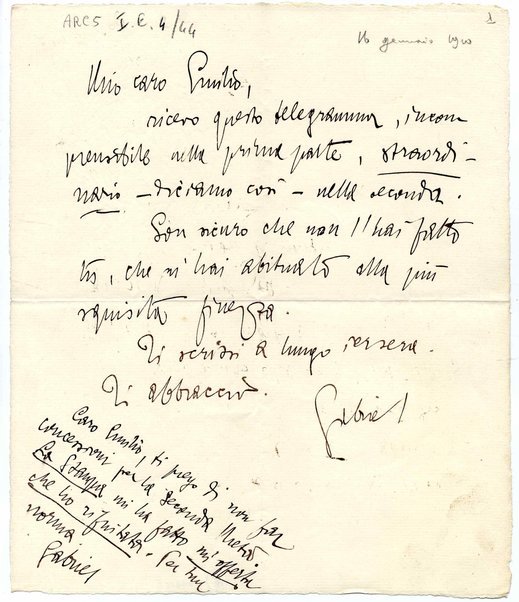 ARC5 I.E.4/44
1
16 gennaio 1910
Mio caro Emilio,
ricevo questo telegramma, incom
prensibile nella prima parte, straordi-
nario – diciamo così – nella seconda.
Son sicuro che non l'hai fatto
tu, che m'hai abituato alla più
squisita finezza.
Ti scrissi a lungo iersera.
Ti abbraccio.
Gabriel
Caro Emilio, ti prego di non far
concessioni per la seconda
La Stampa mi ha fatto un'offerta
che ho rifiutata. Per tua
norma
Gabriel